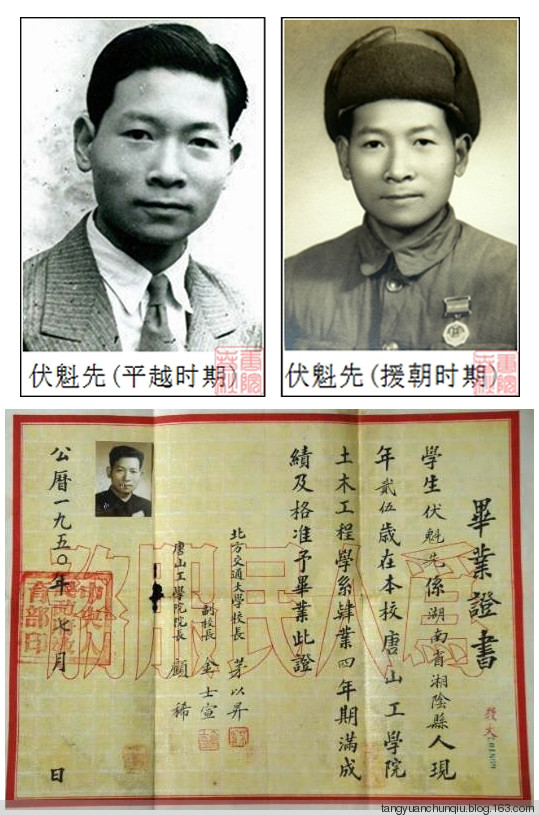 伏魁先(平越时期)
伏魁先(援朝时期)
畢業證書
學生伏魁先係湖南省湘陰縣人現
年貳伍歲在本校唐山工學院
土木工程學系肄業四年期滿成
績及格准予畢業此證
北方交通大學校長 茅以昇
副校長 金士宣
唐山工學院院長 顧稀
公曆一九五〇年七月 日
為人民服務
tangyuanchunqiu.blog.163.com